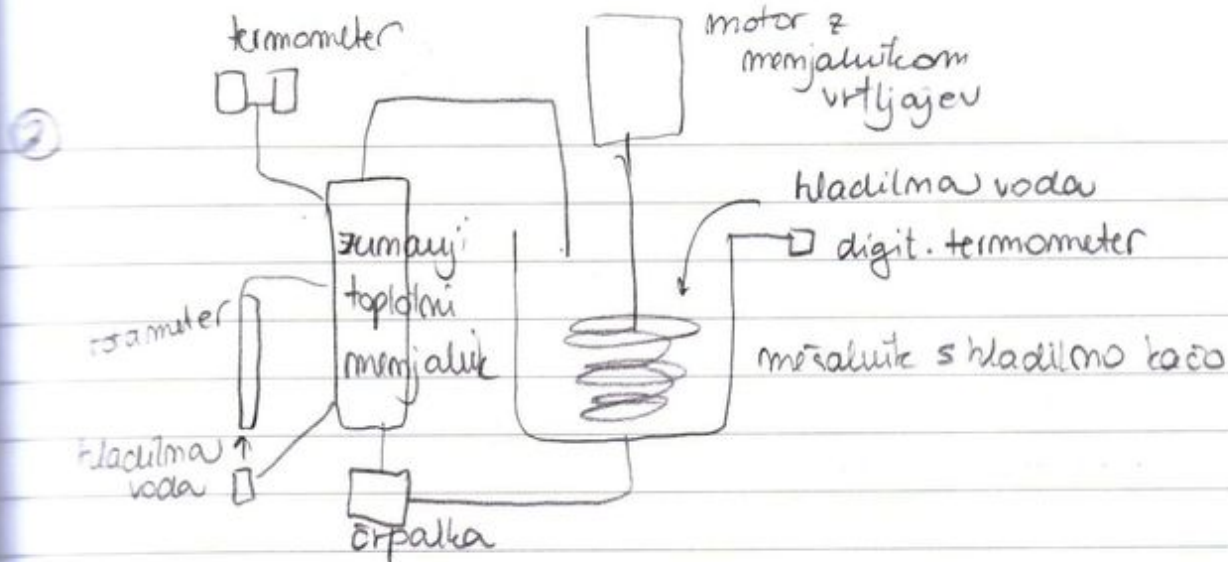 termometer
motor z
menjalnikom
vrtljajev
2
hladilna voda
digit. termometer
zunanji
toplotni
menjalnik
mešalnik s hladilno kačo
hladilna
voda
črpalka